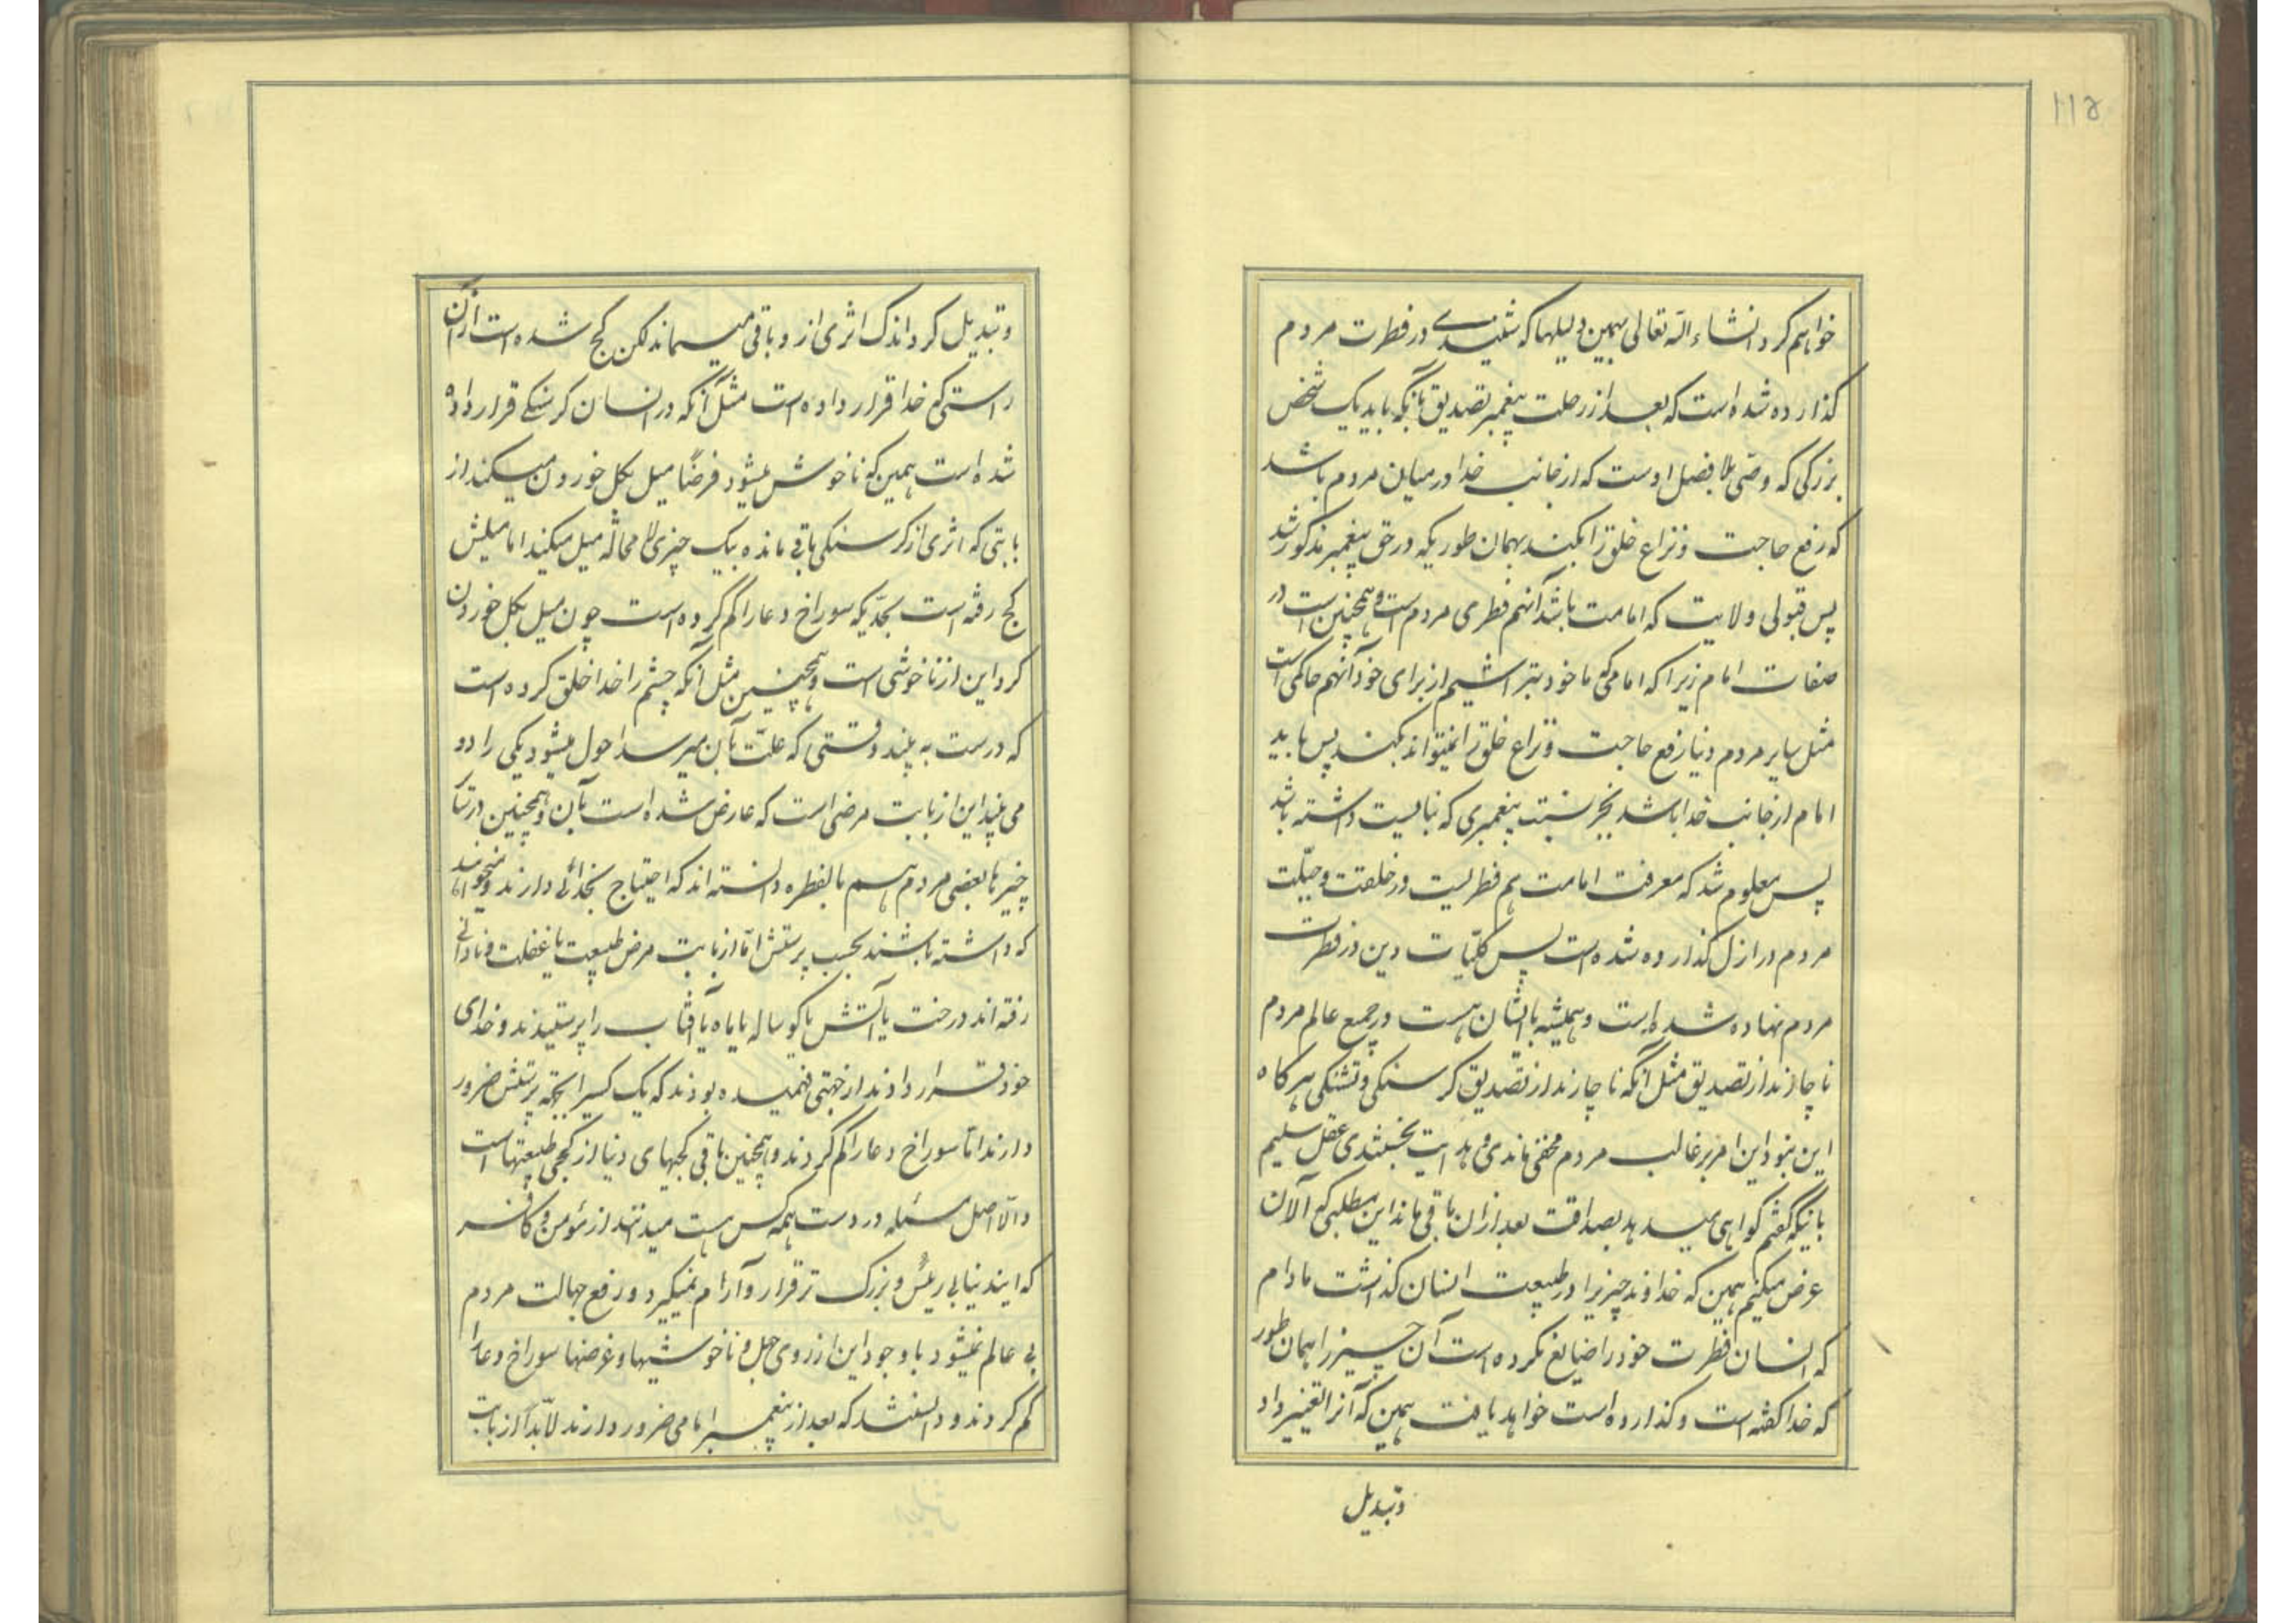 ۱۱۵
خواهم کرد انشاء الله تعالی بهمین دلیلها که شنیدی در فطرت مردم
گذارده شده است که بعد از رحلت پیغمبر تصدیق بآنکه باید یک شخص
بزرگی که وصی بلا فصل اوست که از جانب خدا در میان مردم باشد
که رفع حاجت و نزاع خلق را بکند بهمان طوریکه در حق پیغمبر مذکور شد
پس قبولی ولایت که امامت باشد آنهم فطری مردم است و همچنین است در
صفات امام زیرا که امامی که ما خود بتراشیم از برای خود آنهم حاکمی است
مثل سایر مردم دنیا رفع حاجت و نزاع خلق را نمیتواند بکند پس باید
امام از جانب خدا باشد بجز نسبت پیغمبری که نبایست داشته باشد
پس معلوم شد که معرفت امامت هم فطریست در خلقت و جبلّت
مردم در ازل گذارده شده است پس کلیّات دین در فطرت
مردم نهاده شده است و همیشه با ایشان هست در جمیع عالم مردم
ناچارند از تصدیق مثل آنکه ناچارند از تصدیق گرسنگی و تشنگی هرگاه
این نبود این امر بر غالب مردم مخفی ماندی و هدایت نجستندی عقل سلیم
بآنیکه گفتم گواهی میدهد بصداقت بعد از آن باقی ماند این مطلبی که الآن
عرض میکنم همین که خداوند چیزیرا در طبیعت انسان گذاشت مادام
که انسان فطرت خود را ضایع نکرده است آن چیز را همان طور
که خدا گفته است و گذارده است خواهد یافت همین که آنرا تغییر داد
وتبدیل
و تبدیل کرد اندک اثری از و باقی میماند لکن کج شده است از آن
راستی که خدا قرار داده است مثل آنکه در انسان گرسنگی قرار داده
شده است همین که ناخوش میشود فرضاً میل بگل خوردن میکند از
بابتی که اثری از گرسنگی باقی مانده بیک چیزی لا محاله میل میکند اما میلش
کج رفته است بحدّیکه سوراخ دعا را گم کرده است چون میل بگل خوردن
کرد این از ناخوشی است و همچنین مثل آنکه چشم را خدا خلق کرده است
که درست به بیند وقتی که علّت بآن میرسد احول میشود یکی را دو
می بیند این از بابت مرضی است که عارض شده است بآن و همچنین درتتا
چیز با بعضی مردم هم بالفطره دانسته اند که احتیاج بخدائی دارند و میخواهند
که داشته باشند بجهت پرستش امّا از بابت مرض طبیعت یا غفلت و نادانی
رفته اند درخت یا آتش یا گوساله یا ماه یا آفتاب را پرستیدند و خدای
خود قرار دادند از جهتی فهمیده بودند که یک کسیرا بجهة پرستش ضرور
دارند امّا سوراخ دعا را گم کردند و همچنین باقی کجیهای دنیا از کجی طبیعتهاست
والّا اصل مسئله در دست همه کس هست میدانند از مؤمن و کافر
که ایندنیا بی رئیس و بزرگ تر قرار و آرام نمیگیرد و رفع جهالت مردم
بی عالم نمیشود با وجود این از روی جهل و ناخوشیها و غرضها سوراخ دعا را
گم کردند و دانستند که بعد از پیغمبر امامی ضرور دارند لابدّاً از بابت